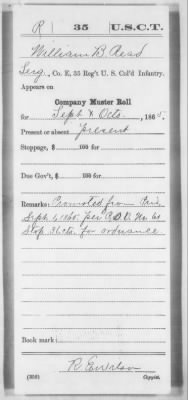 R | 35 | U.S.C.T.
William B Read
Serg, Co. E, 35 Reg't U. S. Col'd Infantry.
Appears on
Company Muster Roll
for Sept & Octo., 1865.
Present or absent Present
Stoppage, $ 100 for
Due Gov't, $ 100 for
Remarks: Promoted from Priv.
Sept. 1, 1865. per R.O. No. 61
Stop. 36 cts. for ordnance
Book mark:
(358)
Copyist.